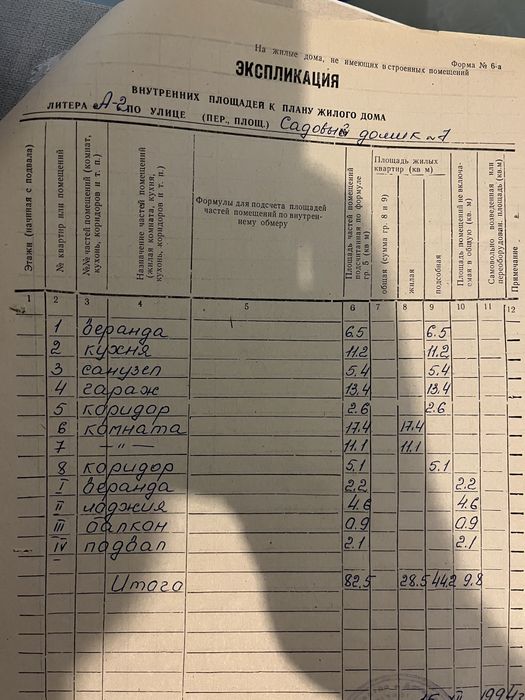 На жилые дома, не имеющих встроенных помещений
Форма № 6-а
ЭКСПЛИКАЦИЯ
ВНУТРЕННИХ ПЛОЩАДЕЙ К ПЛАНУ ЖИЛОГО ДОМА
ЛИТЕРА А-2 ПО УЛИЦЕ (ПЕР., ПЛОЩ.) Садовый домик №7
Этажи (начиная с подвала)
№ квартир или помещений
№№ частей помещений (комнат, кухонь, коридоров и т. п.)
Назначение частей помещений (жилая комната, кухня, кухонь, коридоров и т. п.)
Формулы для подсчета площадей частей помещений по внутреннему обмеру
Площадь частей помещений подсчитанная по формуле гр. 5 (кв м)
Площадь жилых квартир (кв м)
общая (сумма гр. 8 и 9)
жилая
подсобная
Площадь помещений не включаемая в общую (кв. м)
Самовольно возведенная или переоборудован. площадь (кв.м)
Примечание
1 2 3 4 5 6 7 8 9 10 11 12
1 веранда 6.5 6.5
2 кухня 11.2 11.2
3 санузел 5.4 5.4
4 гараж 13.4 13.4
5 коридор 2.6 2.6
6 комната 17.4 17.4
7 —"— 11.1 11.1
8 коридор 5.1 5.1
I веранда 2.2 2.2
II лоджия 4.6 4.6
III балкон 0.9 0.9
IV подвал 2.1 2.1
Итого 82.5 28.5 44.2 9.8